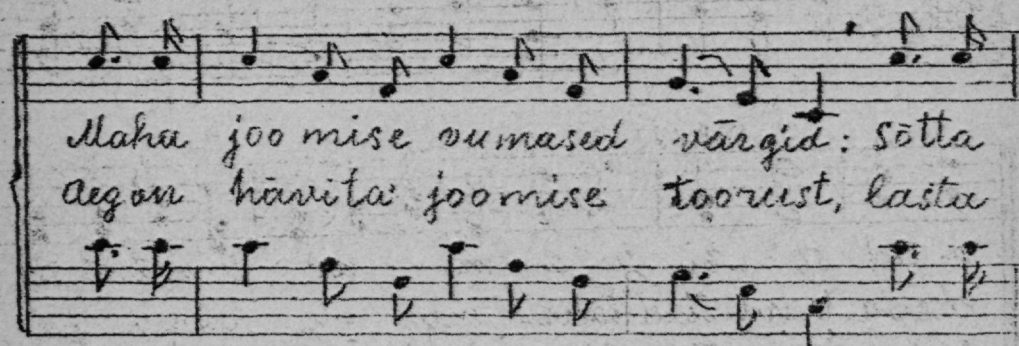 Maha joomise rumased värgid: Sõtta
Aeg on hävita' joomise toorust, lasta